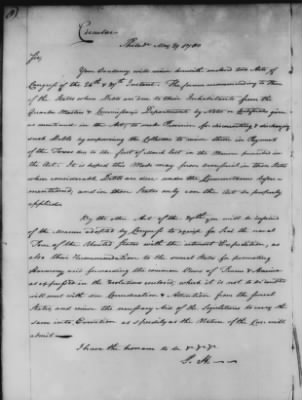 Circular
Philada May 29 1780
Sir,
Your Excellency will receive herewith enclosed two Acts of
Congress of the 26th & 29th Instant. The former recommending to those
of the States where Debts are due to their Inhabitants from the
Quarter Master & Commissary's Departments by Notes or Certificates given
as mentioned in the Act, to make Provision for discounting & discharging
such Debts by empowering the Collectors to receive them in Payment
of the Taxes due to the first of March last in the Manner provided in
the Act. It is hoped this Mode may prove beneficial in those States
where considerable Debts are due under the Circumstances before
mentioned, and in those States only can this Act be properly
applied.
By the other Act of the 29th you will be informed
of the Measures adopted by Congress to equip for Sea the naval
Force of the United States with the utmost Expedition, as
also their Recommendation to the several States for promoting
Harmony and forwarding the common Views of France & America
as expressed in the Resolutions enclosed, which it is not to be doubted
will meet with due Consideration & Attention from the several
States, and receive the necessary Aid of the Legislatures to carry the
same into Execution as speedily as the Nature of the Case will
admit.
I have the honour to be &c &c &c
S. H.